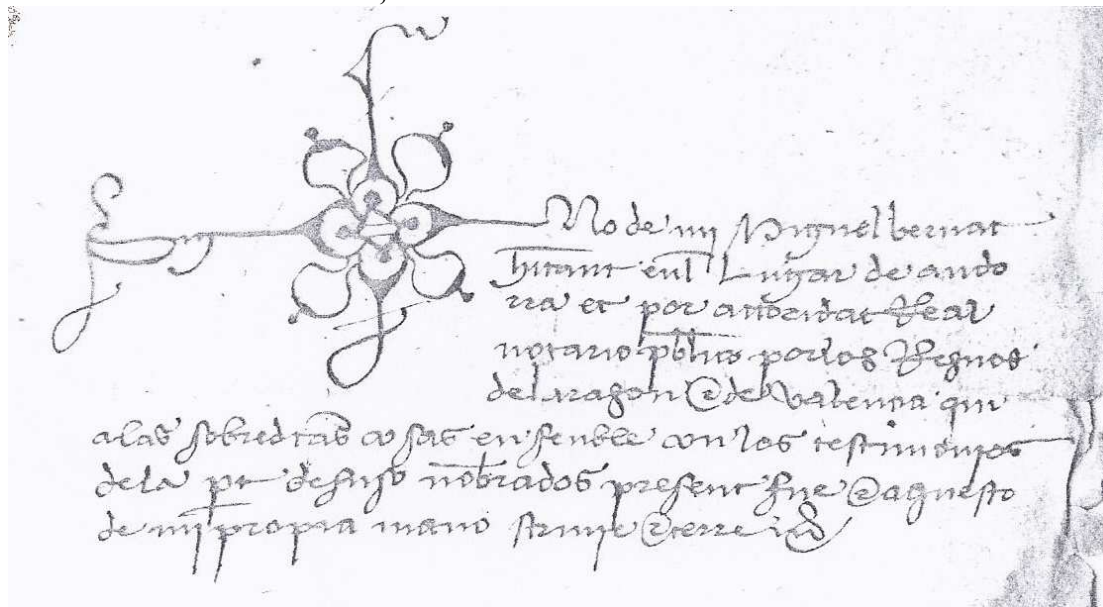 Sig No de mi Miguel bernat
hitant enl Lugar de ando
rra et por actoridat Real
notario pblico por los Regnos
de aragon & de Valencia qui
a las sobreditas cosas ensenble con los testimonios
de la pt desuso nobrados present fue & aquesto
de mi propia mano scriuie & cerre